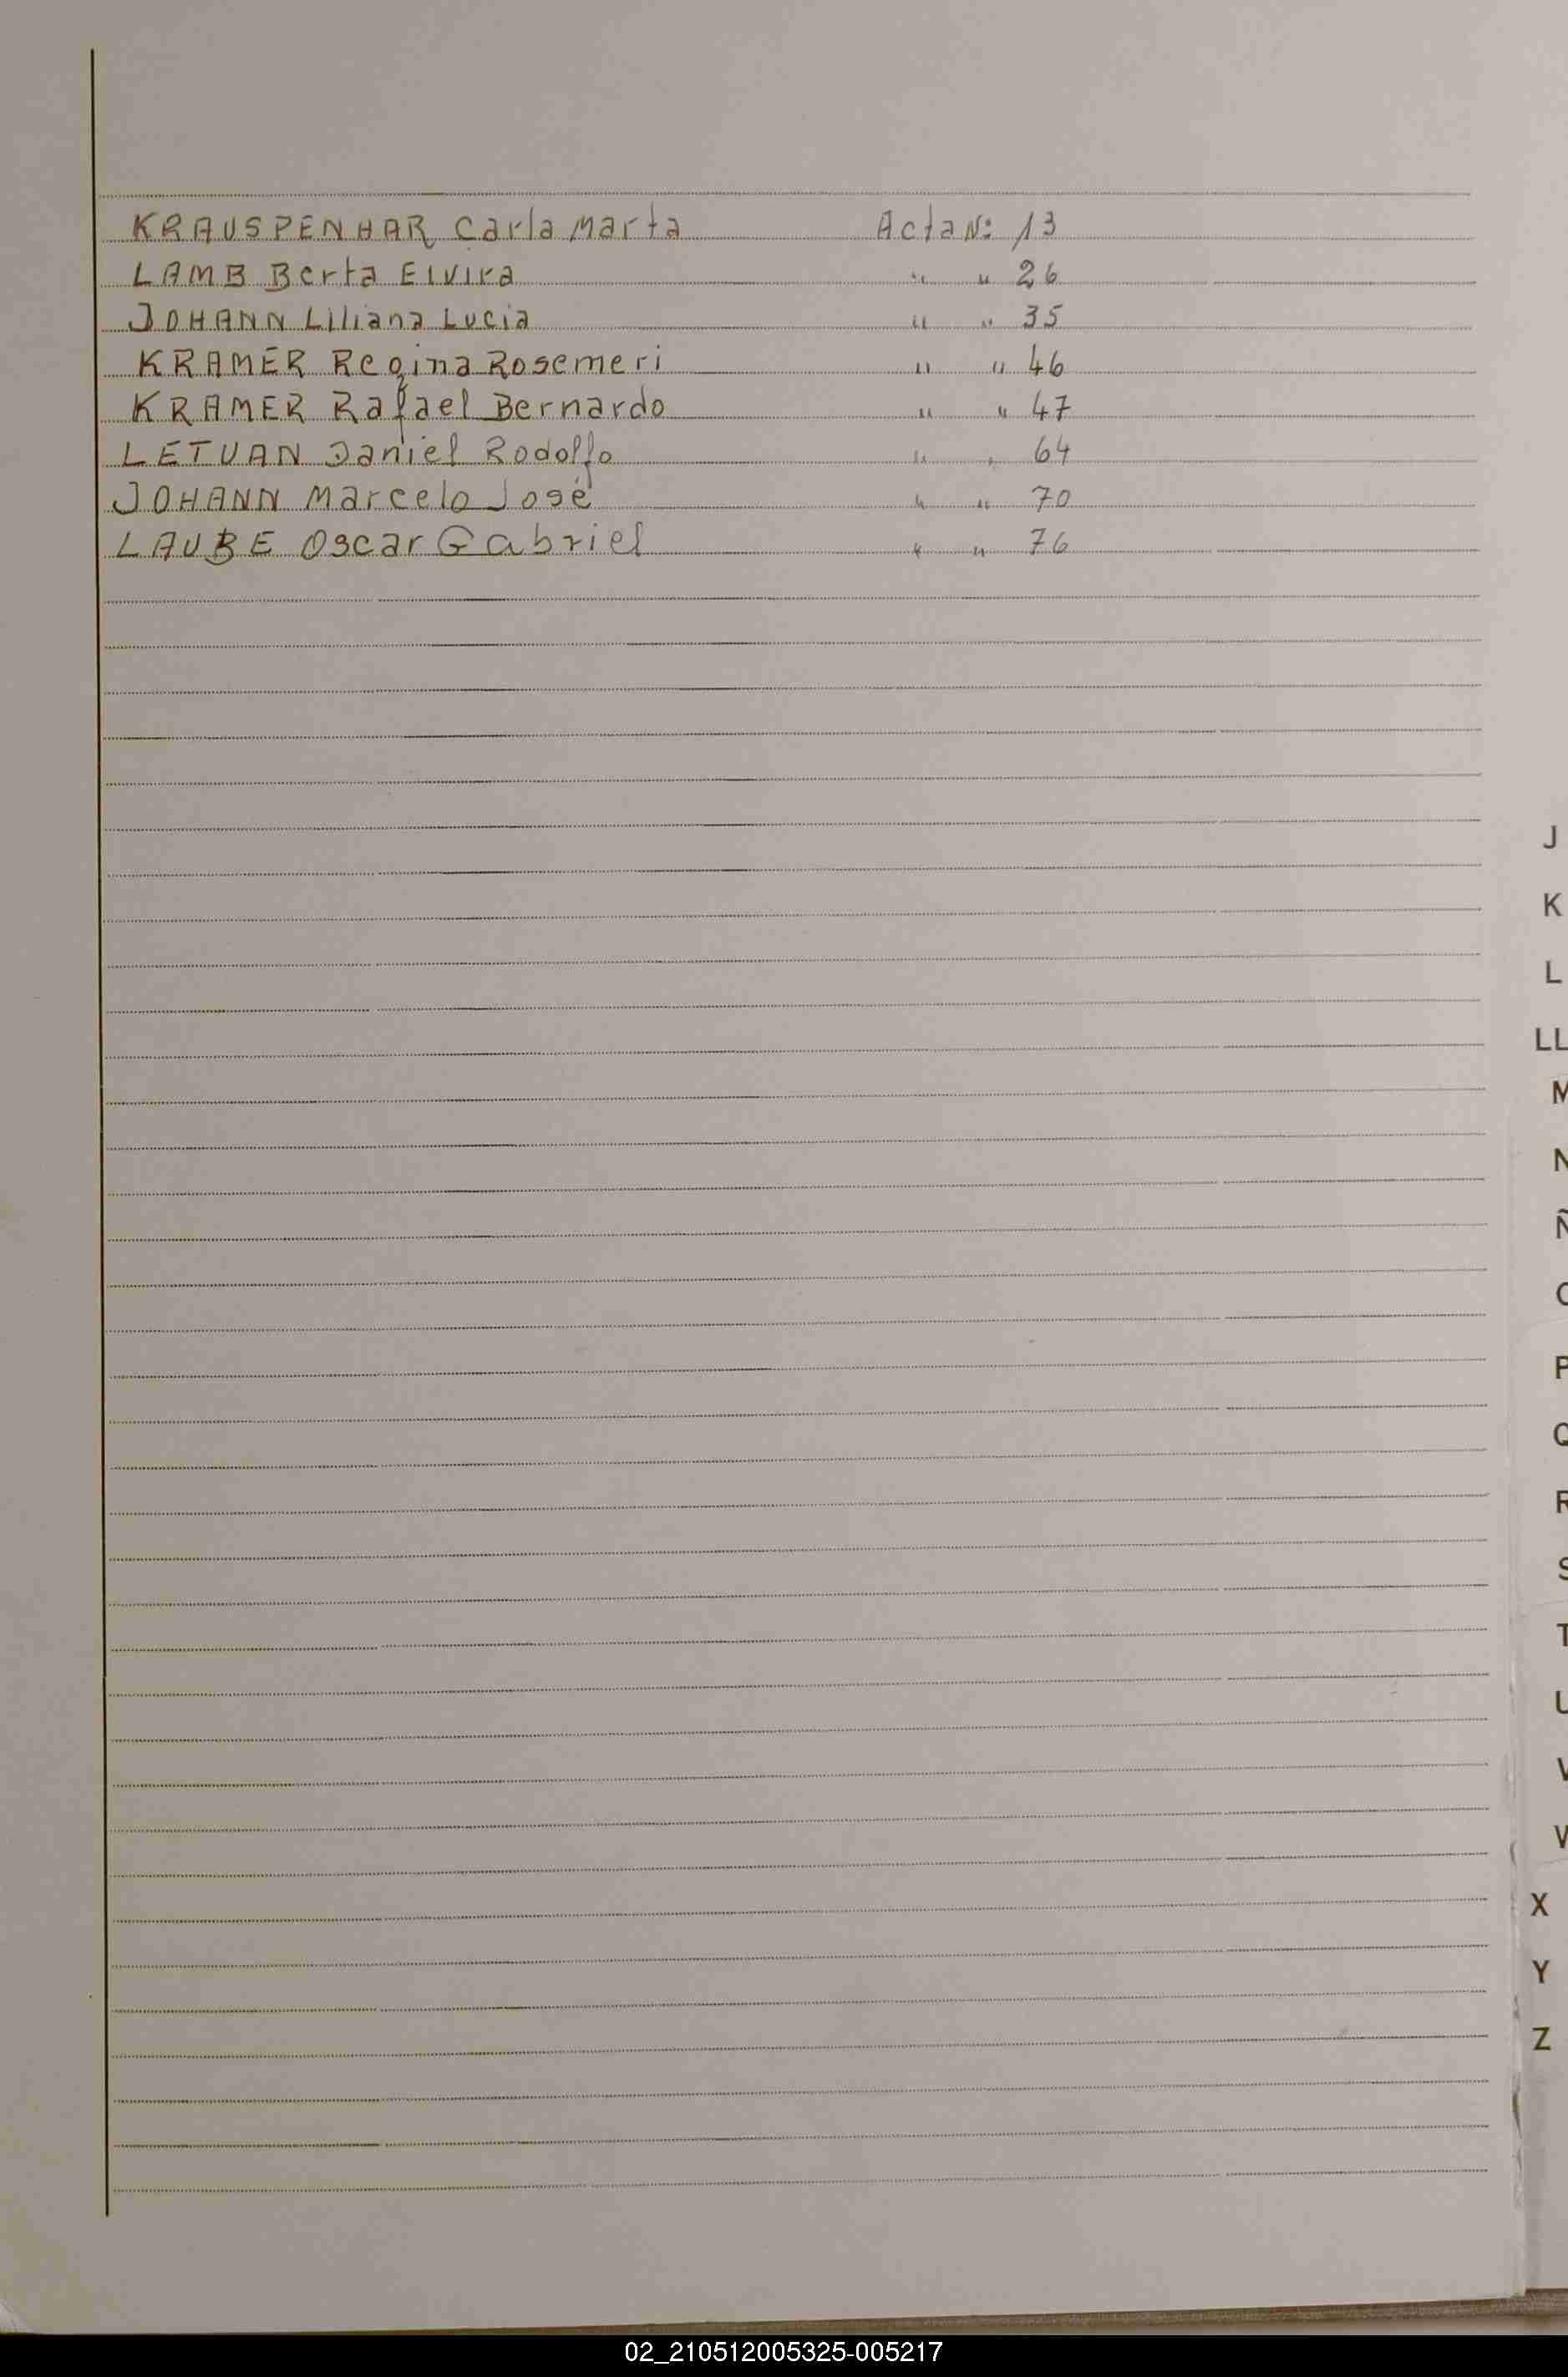 KRAUSPENHAR Carla Marta Acta Nº 13
LAMB Berta Elvira " " 26
JOHANN Liliana Lucia " " 35
KRAMER Regina Rosemeri " " 46
KRAMER Rafael Bernardo " " 47
LETUAN Daniel Rodolfo " " 64
JOHANN Marcelo José " " 70
LAUBE Oscar Gabriel " " 76
J
K
L
LL
M
N
Ñ
O
P
Q
R
S
T
U
V
W
X
Y
Z
02_210512005325-005217